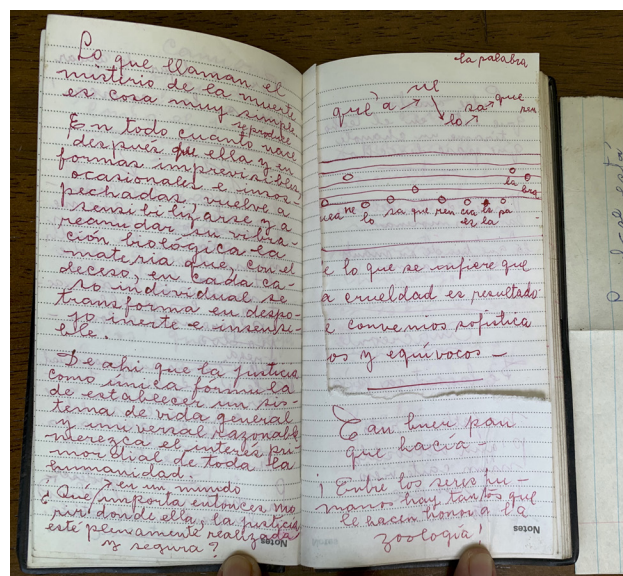 Lo que llaman el
misterio de la muerte
es cosa muy simple.
En todo cuanto nace
y se produce
después de ella y en
formas imprevisibles
ocasionales e insos-
pechadas, vuelve a
sensibilizarse y a
reanudar su vibra-
ción biológica la
materia que, con el
deceso, en cada ca-
so individual se
transforma en despo-
jo inerte e insensi-
ble.
De ahí que la justicia
como única fórmula
de establecer un sis-
tema de vida general
y universal razonable
merezca el interés pri-
mordial de toda la
humanidad.
en un mundo
¿Qué importa entonces mo
rir donde ella, la justicia
esté plenamente realizada
y segura?
Notes
la palabra
que a
lo
sa que ren
la
ne lo sa que ren cia la pa
es la
e lo que se infiere que
a crueldad es resultado
e convenios sofística
os y equívocos —
Tan buen pan
que hacía —
¡Entre los seres hu-
mano hay tantos que
le hacen honor a la
zoología!
Notes